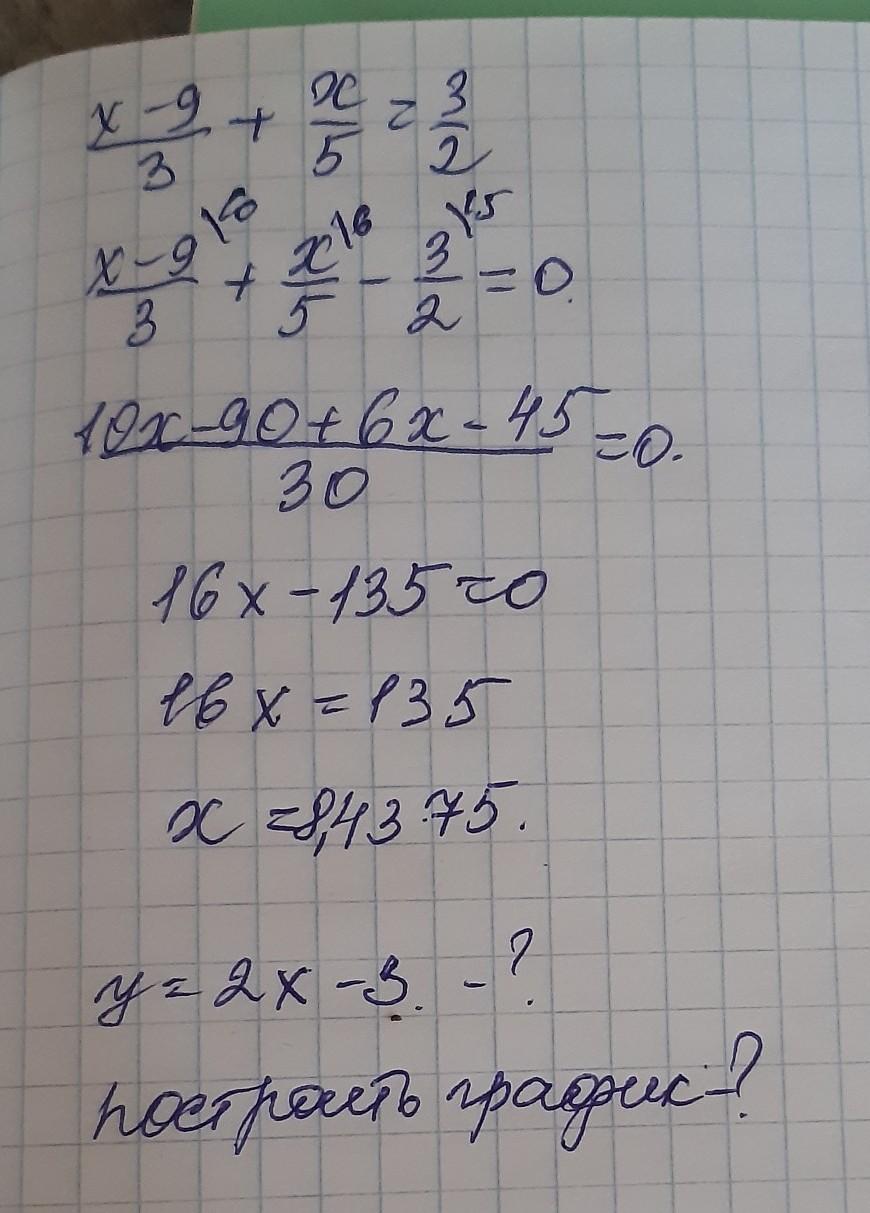 x-9/3 + x/5 = 3/2
x-9\10/3 + x\6/5 - 3\15/2 = 0.
10x-90+6x-45/30 = 0.
16x-135=0
16x=135
x=8,4375.
y=2x-3. -?
построить график-?